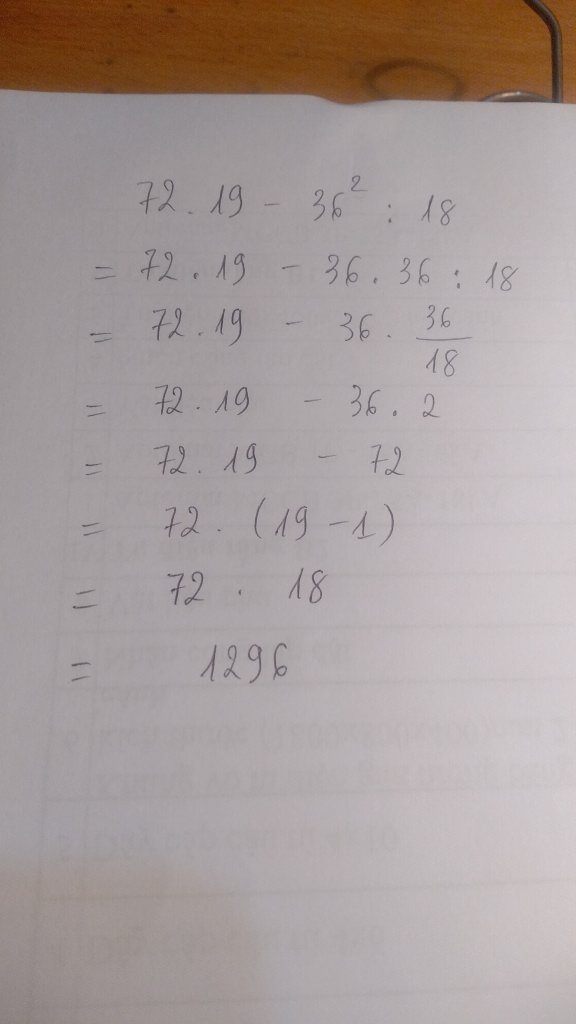 72 . 19 - 36² : 18
= 72 . 19 - 36 . 36 : 18
= 72 . 19 - 36 . 36/18
= 72 . 19 - 36 . 2
= 72 . 19 - 72
= 72 . (19 - 1)
= 72 . 18
= 1296